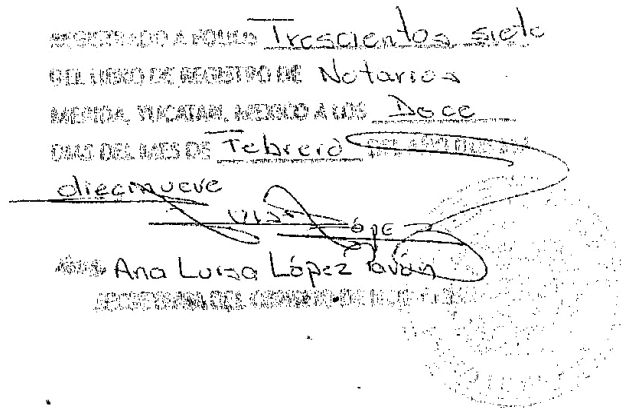 REGISTRADO A FOLIO Trescientos siete
DEL LIBRO DE REGISTRO DE Notarios
MERIDA, YUCATAN, MEXICO A LOS Doce
DIAS DEL MES DE Febrero DEL AÑO DOS MIL
diecinueve
Ana Luisa López Pavón
SECRETARIA DEL